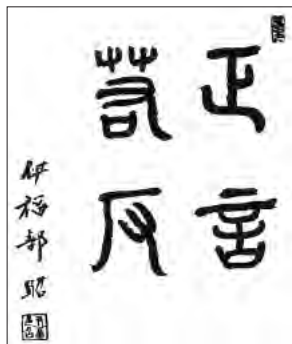 正言
若反
伊福部昭